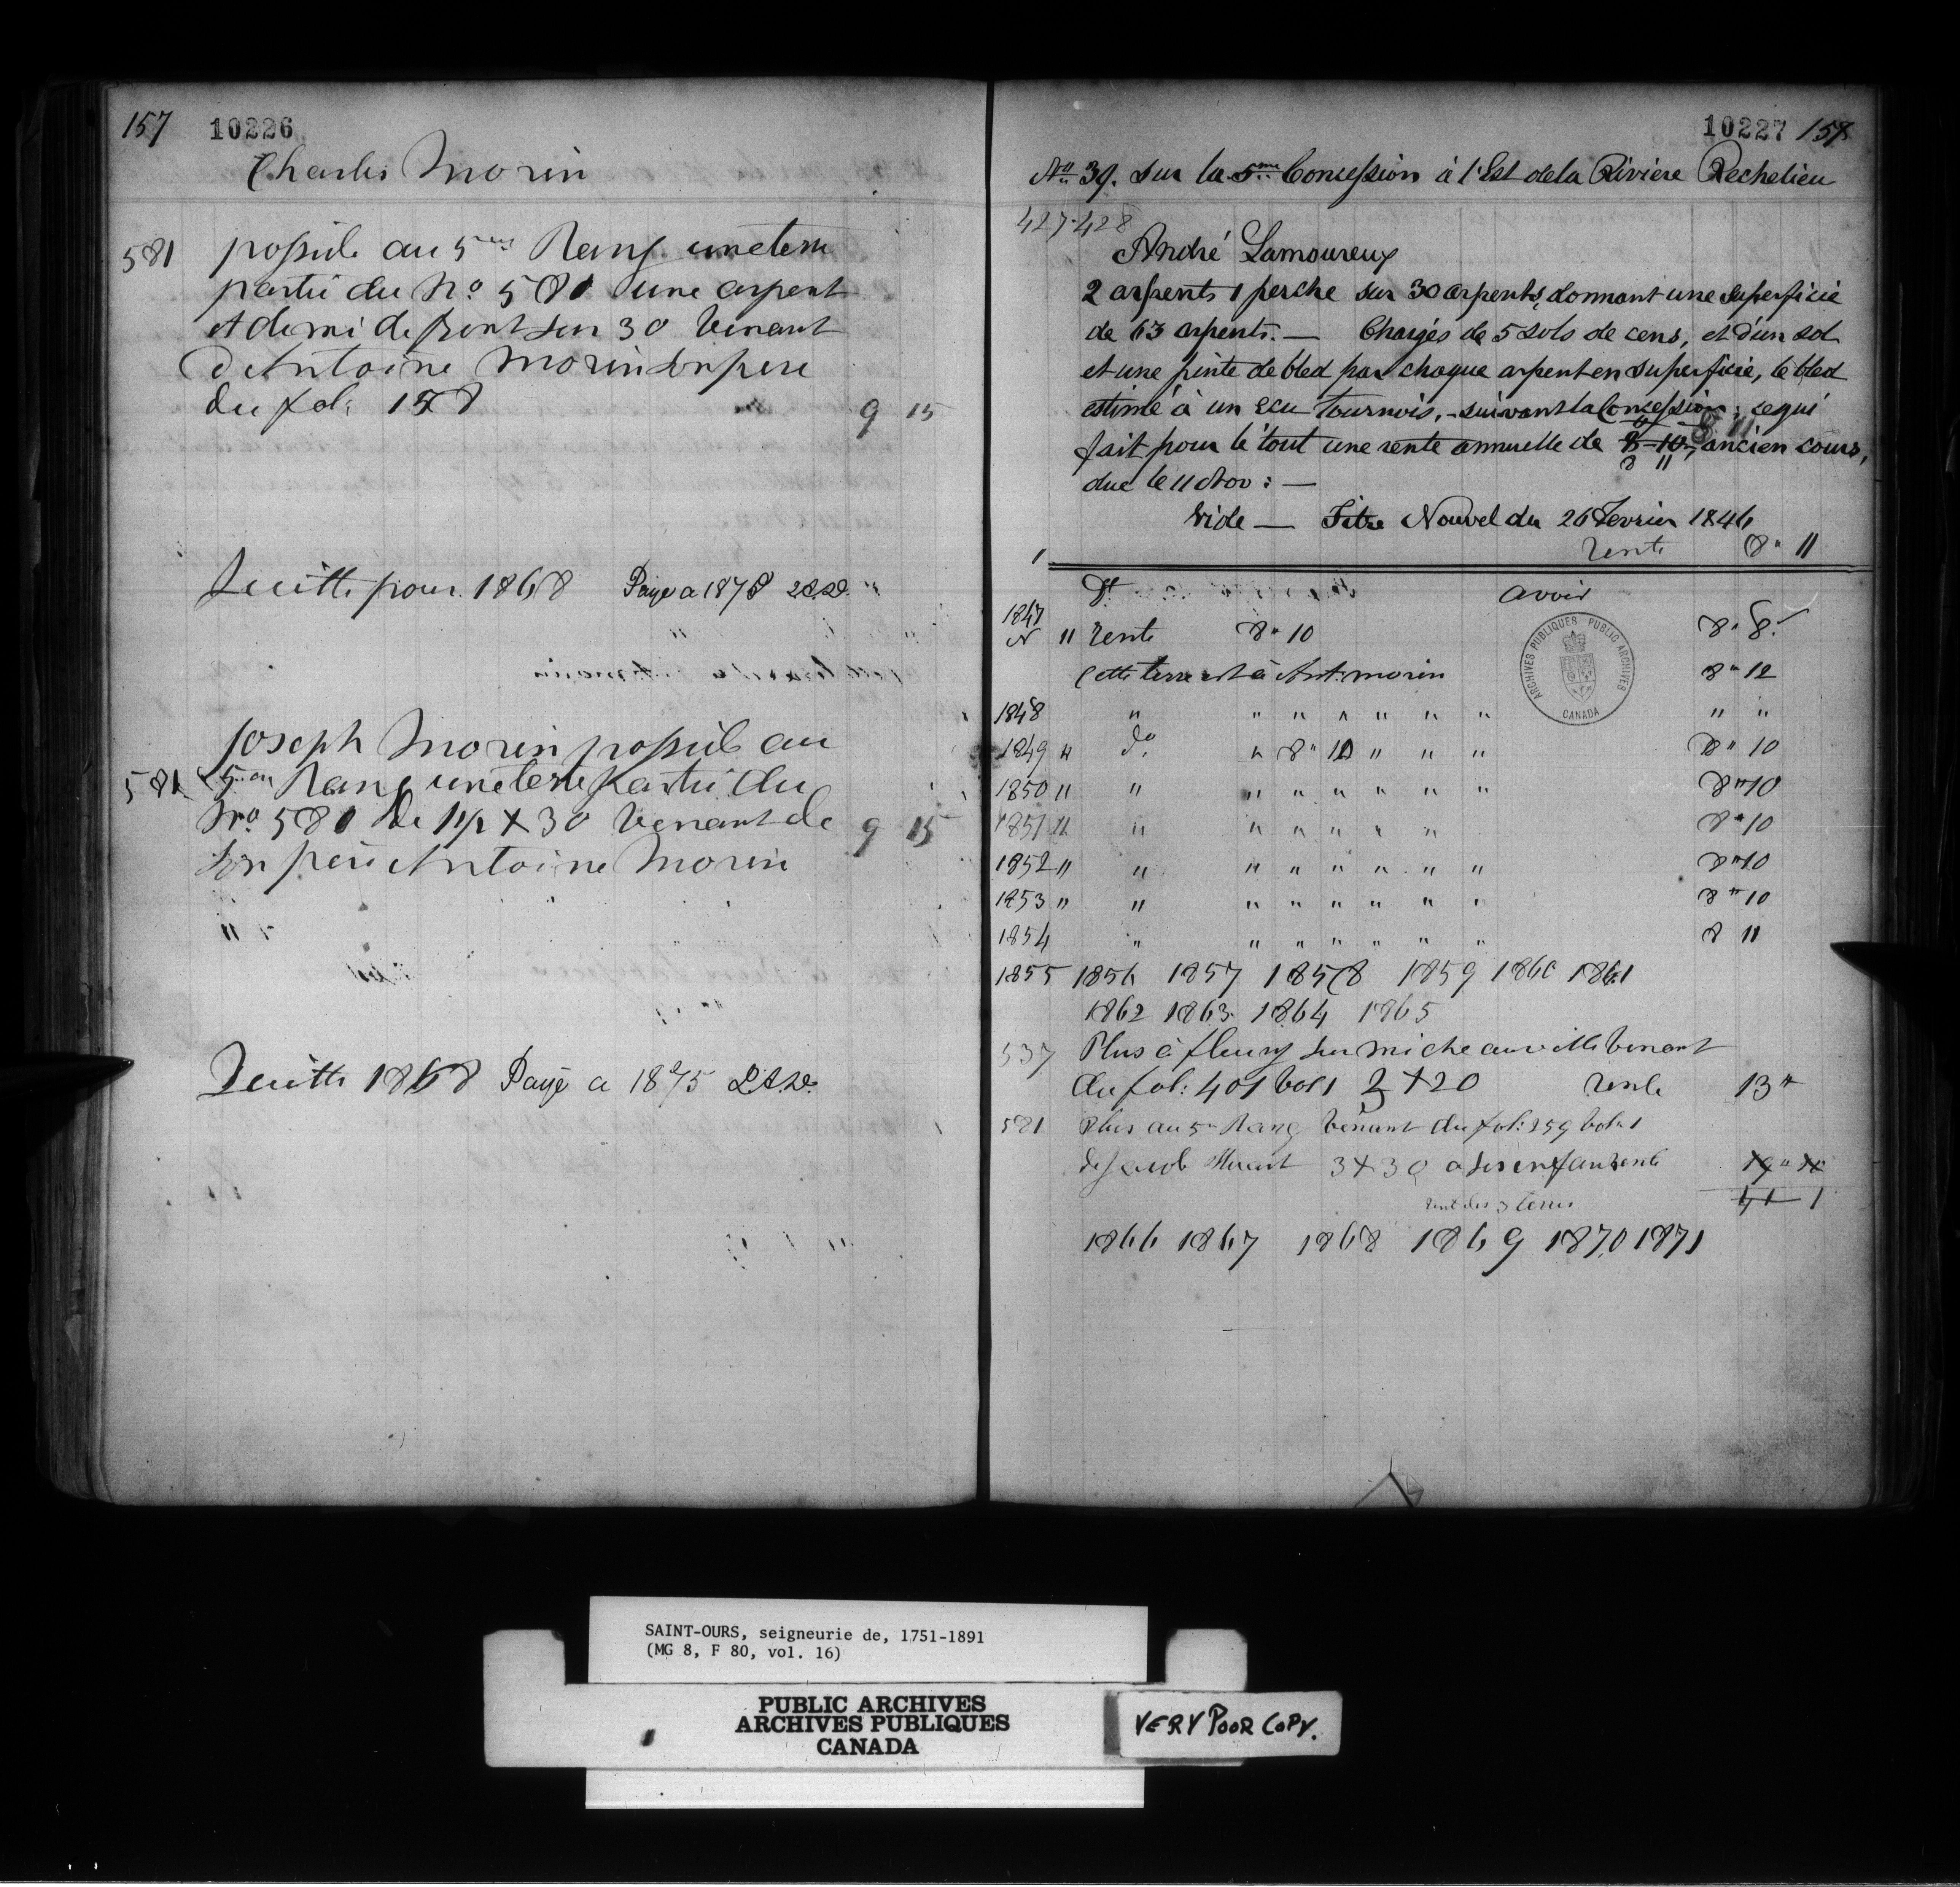 157 10226
Charles Morin
581 possède au 5me Rang une terre
partie du No 580 une arpent
et demi de front sur 30 Venant
d'Antoine Morin son pere
du fol: 158 9 15
Quitte pour 1868 Payé a 1875
Joseph Morin possède au
581 5me Rang une terre partie du
No. 580 de 1 1/2 X 30 Venant de 9 15
son père Antoine Morin
Quitte 1868 Payé a 1875
10227 158
No 39. sur la 5me Concession à l'Est de la Riviere Rechelieu
427-428
André Lamoureux
2 arpents 1 perche sur 30 arpents, donnant une superficie
de 63 arpents. — Chargés de 5 sols de cens, et d'un sol
et une pinte de bled par chaque arpent en superficie, le bled
estimé à un ecu tournois, - suivant la Concession; ce qui
fait pour le tout une rente annuelle de 8-10, 8 11 ancien cours,
8 11
due le 11 Nov: —
Vide — Titre Nouvel du 26 Fevrier 1846
1 rente 8 " 11
Dt avoir
1847
N 11 rente 8 " 10 8 " 8
Cette terre est à Ant: morin 8 " 12
ARCHIVES PUBLIQUES PUBLIC ARCHIVES
CANADA
1848 " " " " " " " " "
1849 " do " 8 " 10 " " " 8 " 10
1850 " " " " " " " " 8 " 10
1851 " " " " " " " 8 " 10
1852 " " " " " " " " 8 " 10
1853 " " " " " " " " 8 " 10
1854 " " " " " " " 8 11
1855 1856 1857 1858 1859 1860 1861
1862 1863 1864 1865
537 Plus à fleury sur micheauville venant
du fol: 401 vol 1 2 X 20 rente 13 "
581 Plus au 5e Rang Venant du fol: 259 vol: 1
de 3 X 30 a ses enfants rente 19 " 10
rente des 3 terres 41 1
1866 1867 1868 1869 1870 1871
SAINT-OURS, seigneurie de, 1751-1891
(MG 8, F 80, vol. 16)
PUBLIC ARCHIVES
ARCHIVES PUBLIQUES
CANADA
VERY POOR COPY.